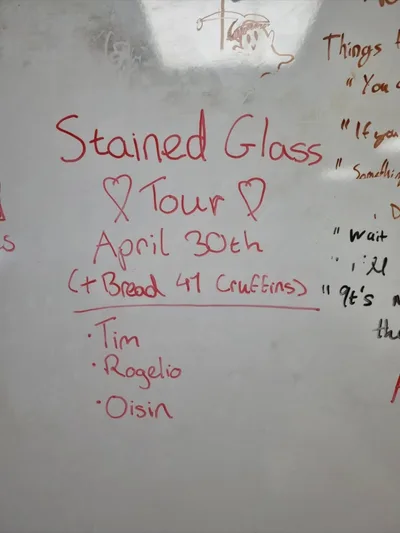 Stained Glass
Tour
April 30th
(+ Bread 41 Cruffins)
· Tim
· Rogelio
· Oisin
Things
"You
"If you
"Something
"Wait
"It's